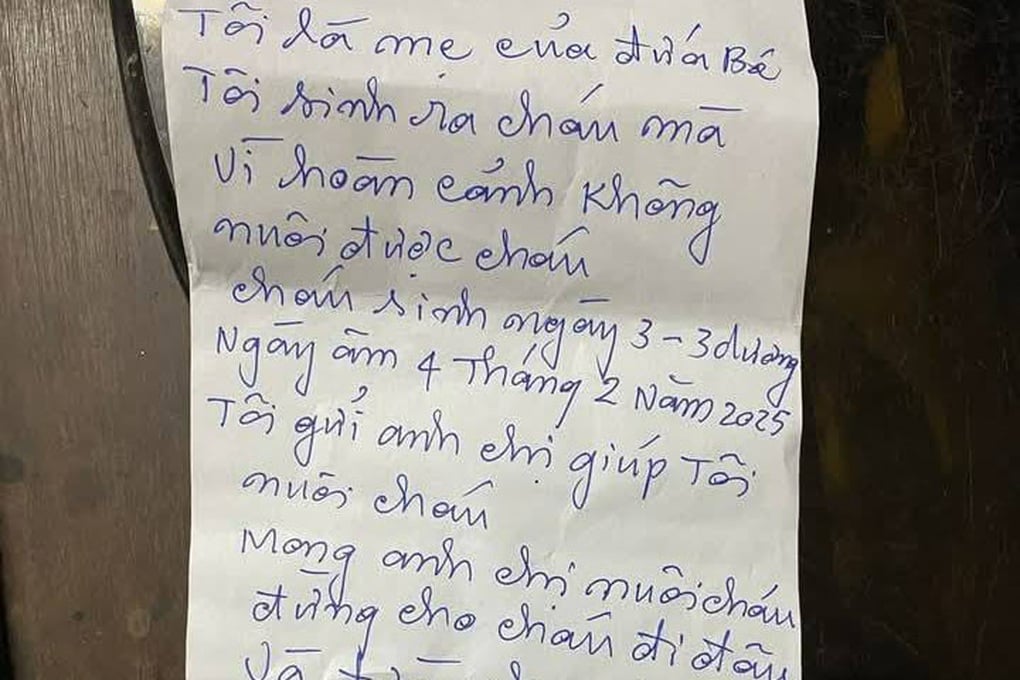 Tôi là mẹ của đứa Bé
Tôi sinh ra cháu mà
Vì hoàn cảnh Không
nuôi được cháu
cháu sinh ngày 3-3 dương
Ngày âm 4 Tháng 2 Năm 2025
Tôi gửi anh chị giúp Tôi
nuôi cháu
Mong anh chị nuôi cháu
đừng cho cháu đi đâu
Và